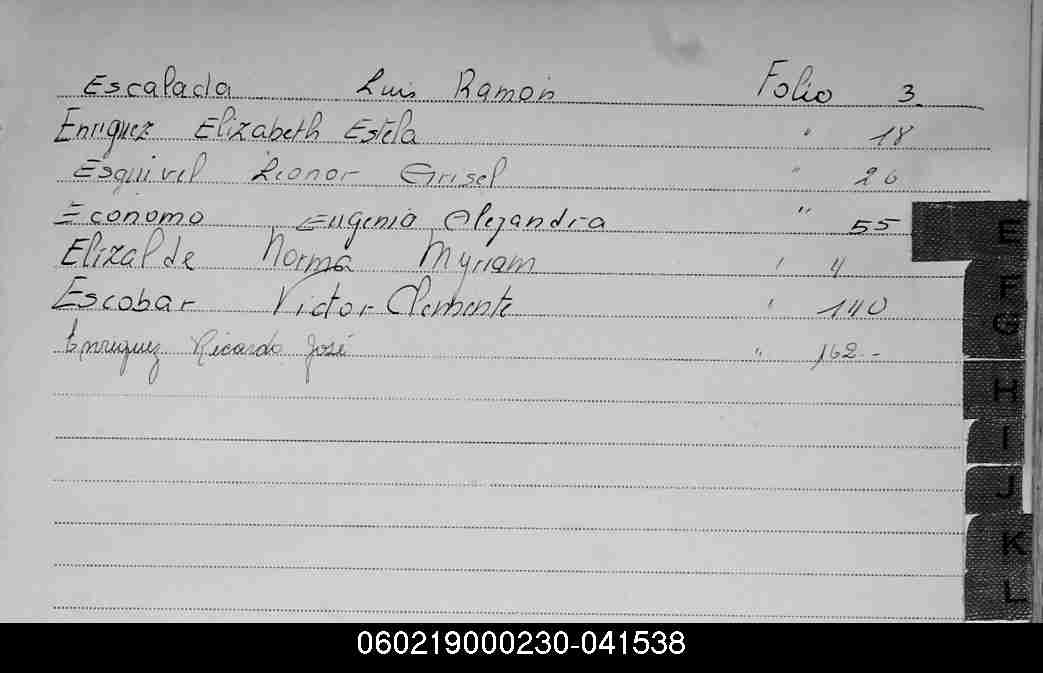 Escalada Luis Ramón Folio 3.
Enriquez Elizabeth Estela " 18
Esquivel Leonor Grisel " 26
Economo Eugenia Alejandra " 55
Elizalde Norma Myriam " 4
Escobar Victor Clemente " 140
Enriquez Ricardo José " 162.-
E
F
G
H
I
J
K
L
060219000230-041538